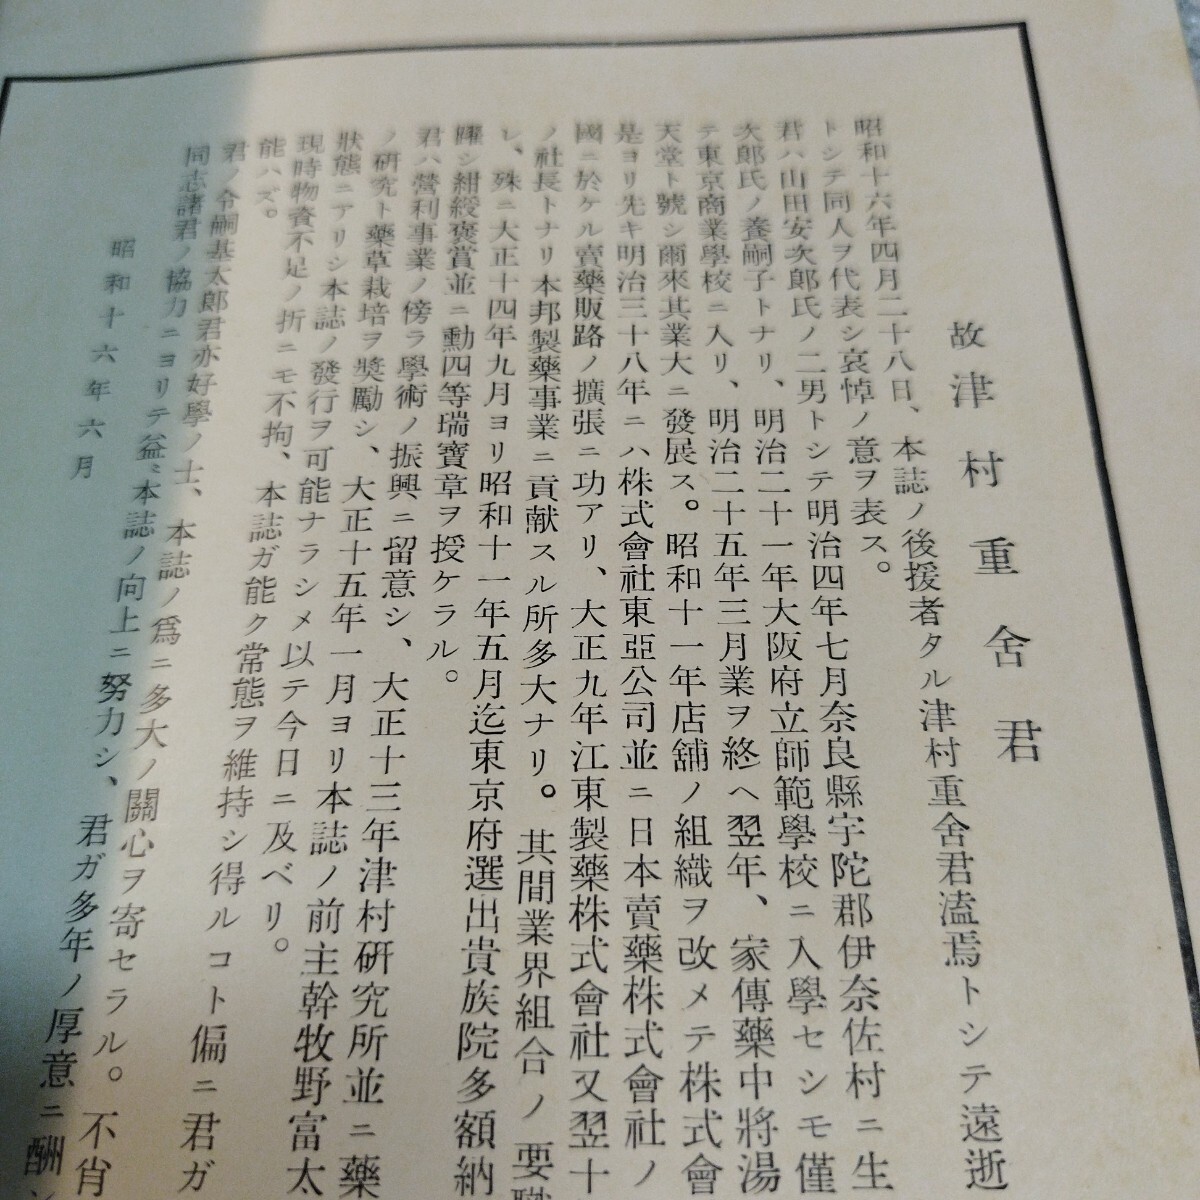 故津村重舍君
昭和十六年四月二十八日、本誌ノ後援者タル津村重舍君溘焉トシテ遠逝
トシテ同人ヲ代表シ哀悼ノ意ヲ表ス。
君ハ山田安次郎氏ノ二男トシテ明治四年七月奈良縣宇陀郡伊奈佐村ニ生
次郎氏ノ養嗣子トナリ、明治二十一年大阪府立師範學校ニ入學セシモ僅
テ東京商業學校ニ入リ、明治二十五年三月業ヲ終ヘ翌年、家傳藥中將湯
天堂ト號シ爾來其業大ニ發展ス。昭和十一年店舖ノ組織ヲ改メテ株式會
是ヨリ先キ明治三十八年ニハ株式會社東亞公司並ニ日本賣藥株式會社ノ
國ニ於ケル賣藥販路ノ擴張ニ功アリ、大正九年江東製藥株式會社又翌十
ノ社長トナリ本邦製藥事業ニ貢献スル所多大ナリ。其間業界組合ノ要職
レ、殊ニ大正十四年九月ヨリ昭和十一年五月迄東京府選出貴族院多額納
躍シ紺綬褒賞並ニ勳四等瑞寶章ヲ授ケラル。
君ハ營利事業ノ傍ラ學術ノ振興ニ留意シ、大正十三年津村研究所並ニ藥
ノ研究ト藥草栽培ヲ獎勵シ、大正十五年一月ヨリ本誌ノ前主幹牧野富太
狀態ニアリシ本誌ノ發行ヲ可能ナラシメ以テ今日ニ及ベリ。
現時物資不足ノ折ニモ不拘、本誌ガ能ク常態ヲ維持シ得ルコト偏ニ君ガ
能ハズ。
君ノ令嗣基太郎君亦好學ノ士、本誌ノ爲ニ多大ノ關心ヲ寄セラル。不肖
同志諸君ノ協力ニヨリテ益〻本誌ノ向上ニ努力シ、君ガ多年ノ厚意ニ酬
昭和十六年六月